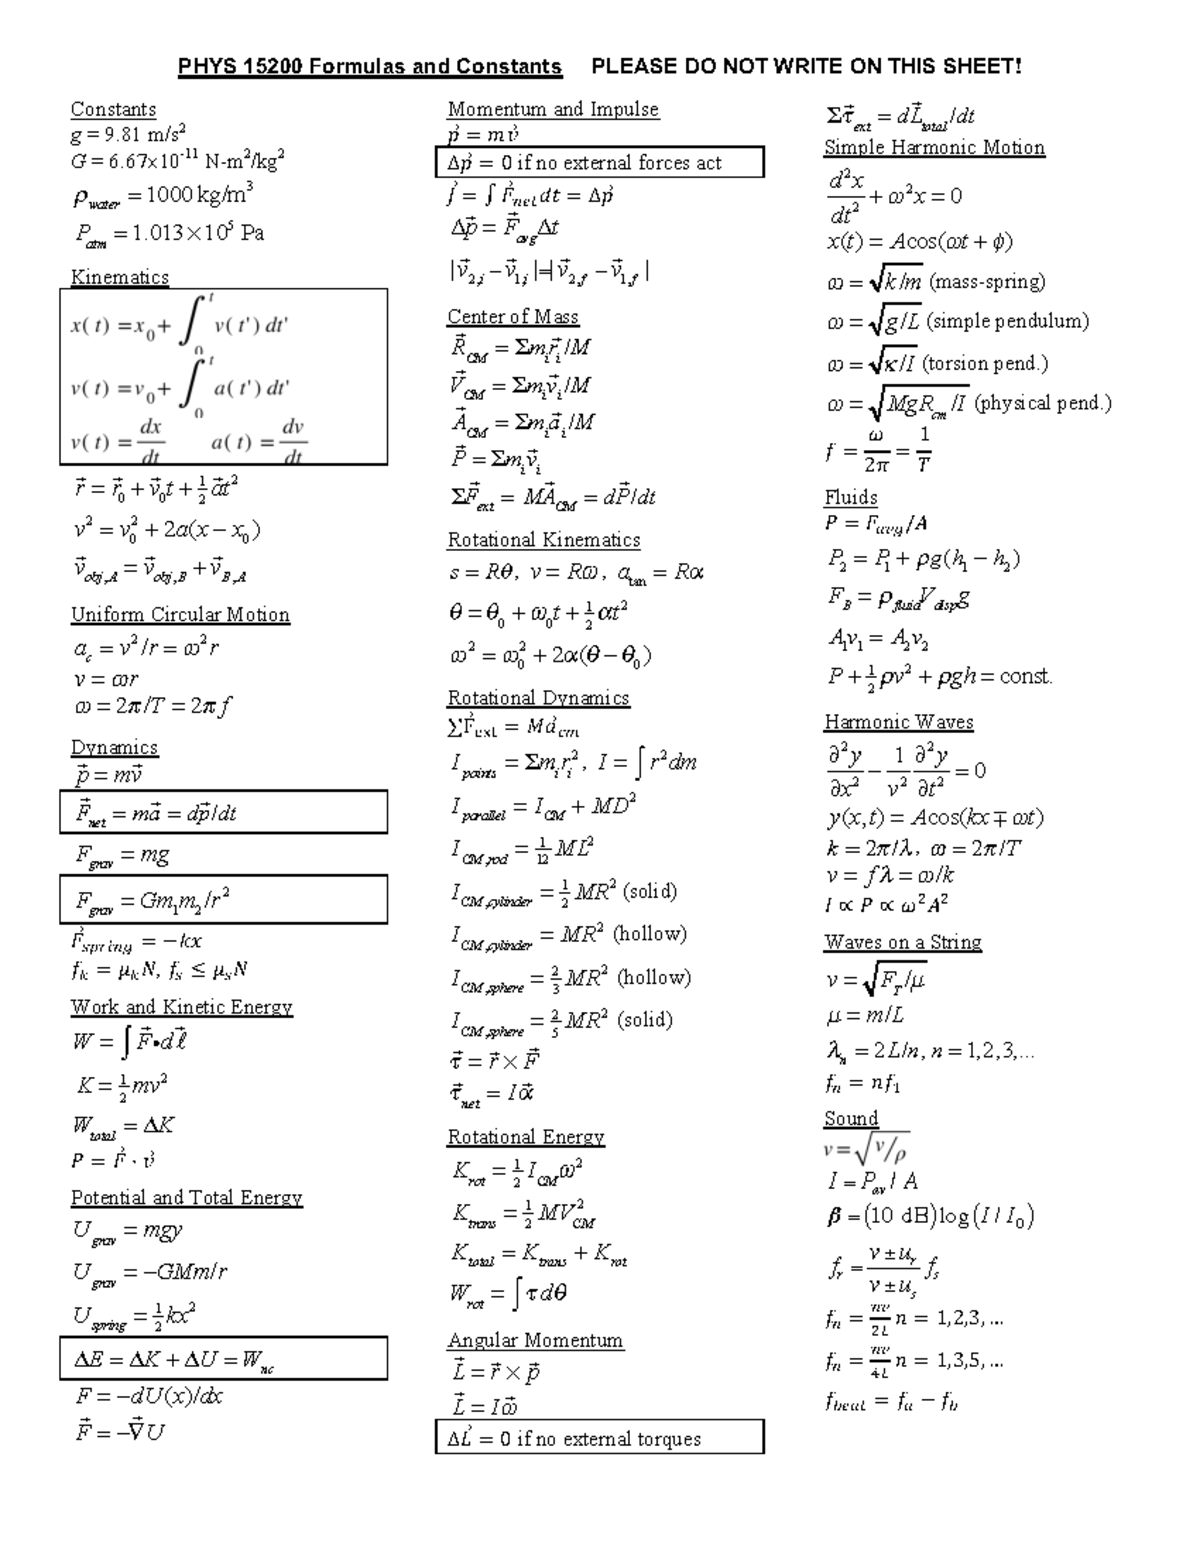 PHYS 15200 Formulas and Constants PLEASE DO NOT WRITE ON THIS SHEET!
Constants
g = 9.81 m/s²
G = 6.67×10⁻¹¹ N-m²/kg²
ρ_water = 1000 kg/m³
P_atm = 1.013×10⁵ Pa
Kinematics
x( t) = x₀ + ∫₀ᵗ v( t') dt'
v( t) = v₀ + ∫₀ᵗ a( t') dt'
v( t) = dx/dt a( t) = dv/dt
r⃗ = r⃗₀ + v⃗₀t + ½ a⃗t²
v² = v₀² + 2a(x − x₀)
v⃗_obj,A = v⃗_obj,B + v⃗_B,A
Uniform Circular Motion
a_c = v²/r = ω²r
v = ωr
ω = 2π/T = 2πf
Dynamics
p⃗ = mv⃗
F⃗_net = ma⃗ = dp⃗/dt
F_grav = mg
F_grav = Gm₁m₂/r²
F⃗_spring = −kx
f_k = μ_kN, f_s ≤ μ_sN
Work and Kinetic Energy
W = ∫ F⃗•dℓ⃗
K = ½mv²
W_total = ΔK
P = F⃗ · v⃗
Potential and Total Energy
U_grav = mgy
U_grav = −GMm/r
U_spring = ½kx²
ΔE = ΔK + ΔU = W_nc
F = −dU(x)/dx
F⃗ = −∇⃗U
Momentum and Impulse
p⃗ = mv⃗
Δp⃗ = 0 if no external forces act
J⃗ = ∫ F⃗_net dt = Δp⃗
Δp⃗ = F⃗_avgΔt
|v⃗₂,ᵢ − v⃗₁,ᵢ|=|v⃗_2,f − v⃗_1,f|
Center of Mass
R⃗_CM = Σmᵢr⃗ᵢ/M
V⃗_CM = Σmᵢv⃗ᵢ/M
A⃗_CM = Σmᵢa⃗ᵢ/M
P⃗ = Σmᵢv⃗ᵢ
ΣF⃗_ext = MA⃗_CM = dP⃗/dt
Rotational Kinematics
s = Rθ, v = Rω, a_tan = Rα
θ = θ₀ + ω₀t + ½αt²
ω² = ω₀² + 2α(θ − θ₀)
Rotational Dynamics
∑F⃗_ext = Ma⃗_cm
I_points = Σmᵢrᵢ², I = ∫ r²dm
I_parallel = I_CM + MD²
I_CM,rod = 1/12 ML²
I_CM,cylinder = ½ MR² (solid)
I_CM,cylinder = MR² (hollow)
I_CM,sphere = 2/3 MR² (hollow)
I_CM,sphere = 2/5 MR² (solid)
τ⃗ = r⃗ × F⃗
τ⃗_net = Iα⃗
Rotational Energy
K_rot = ½ I_CMω²
K_trans = ½ MV²_CM
K_total = K_trans + K_rot
W_rot = ∫ τdθ
Angular Momentum
L⃗ = r⃗ × p⃗
L⃗ = Iω⃗
ΔL⃗ = 0 if no external torques
Στ⃗_ext = dL⃗_total/dt
Simple Harmonic Motion
d²x/dt² + ω²x = 0
x(t) = Acos(ωt + ϕ)
ω = √k/m (mass-spring)
ω = √g/L (simple pendulum)
ω = √κ/I (torsion pend.)
ω = √MgR_cm/I (physical pend.)
f = ω/2π = 1/T
Fluids
P = F_avg/A
P₂ = P₁ + ρg(h₁ − h₂)
F_B = ρ_fluidV_dispg
A₁v₁ = A₂v₂
P + ½ρv² + ρgh = const.
Harmonic Waves
∂²y/∂x² − 1/v² ∂²y/∂t² = 0
y(x,t) = Acos(kx ∓ ωt)
k = 2π/λ, ω = 2π/T
v = fλ = ω/k
I ∝ P ∝ ω²A²
Waves on a String
v = √F_T/μ
μ = m/L
λₙ = 2L/n, n = 1,2,3,...
fₙ = nf₁
Sound
v = √v/ρ
I = P_av / A
β = (10 dB)log(I / I₀)
f_r = (v ± u_r)/(v ± u_s) f_s
fₙ = nv/2L n = 1,2,3, ...
fₙ = nv/4L n = 1,3,5, ...
f_beat = f_a − f_b